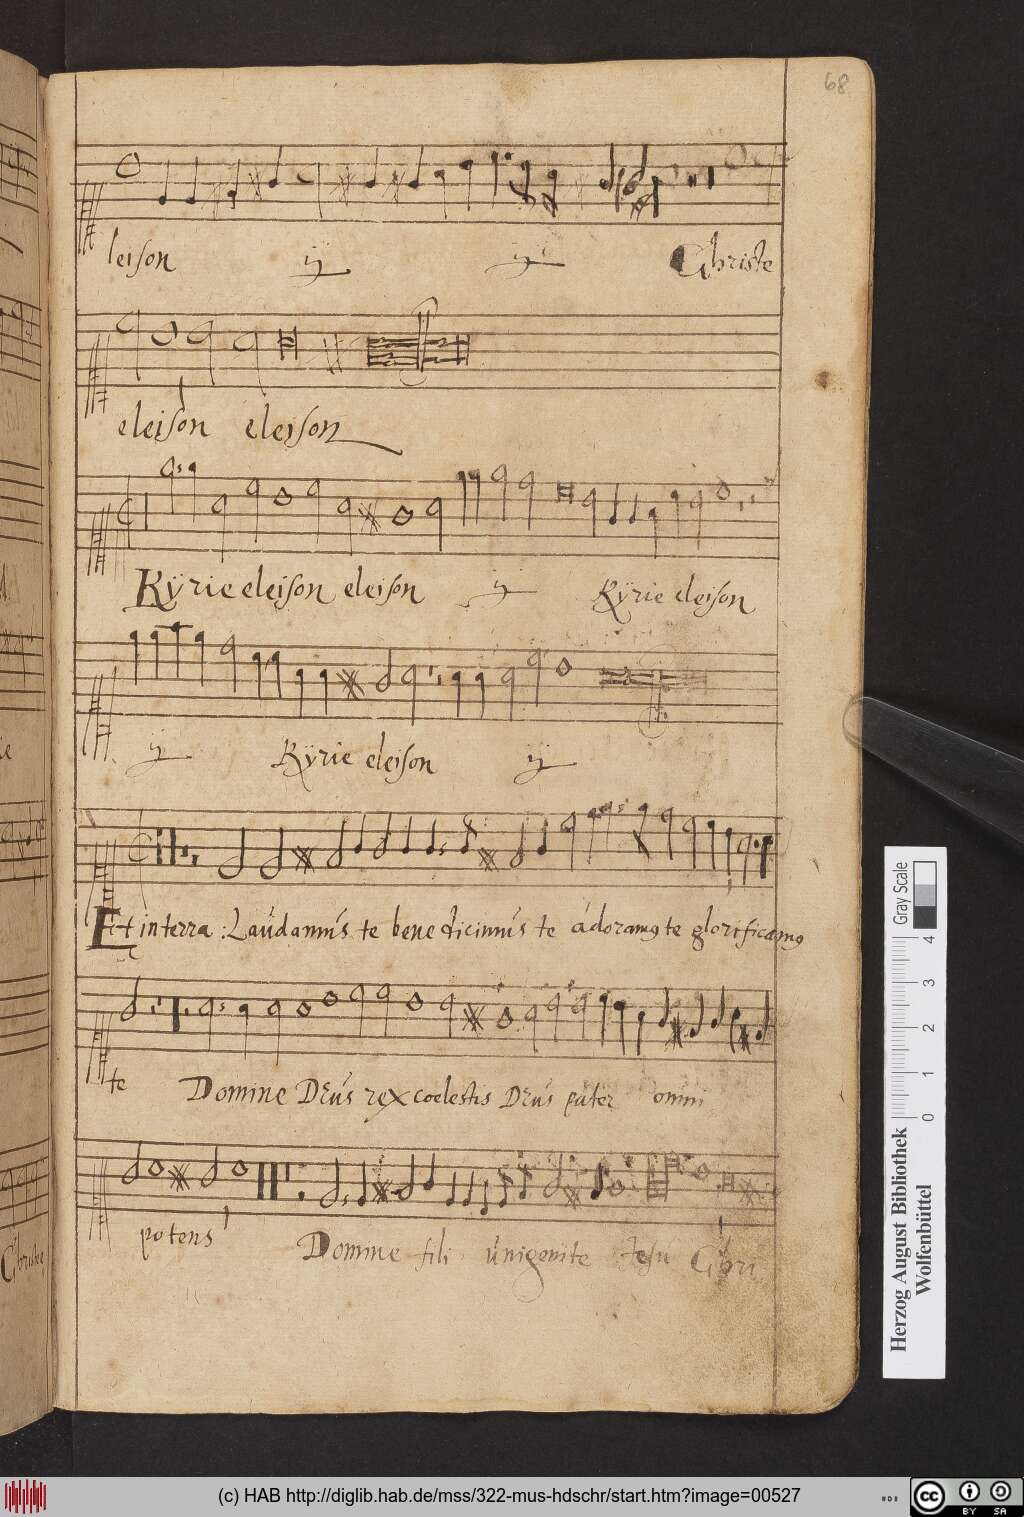 68
leison ij ij Christe
eleison eleison
Kÿrie eleison eleison ij Kÿrie eleison
ij Kÿrie eleison ij
Et in terra : Laudamus te benedicimus te adoramꝰ te glorificamꝰ
te Domine Deus rex coelestis Deus pater omni
potens Domine fili unigenite Jesu Chri
Christe
Gray Scale
0 1 2 3 4
Herzog August Bibliothek
Wolfenbüttel
(c) HAB http://diglib.hab.de/mss/322-mus-hdschr/start.htm?image=00527
cc BY SA